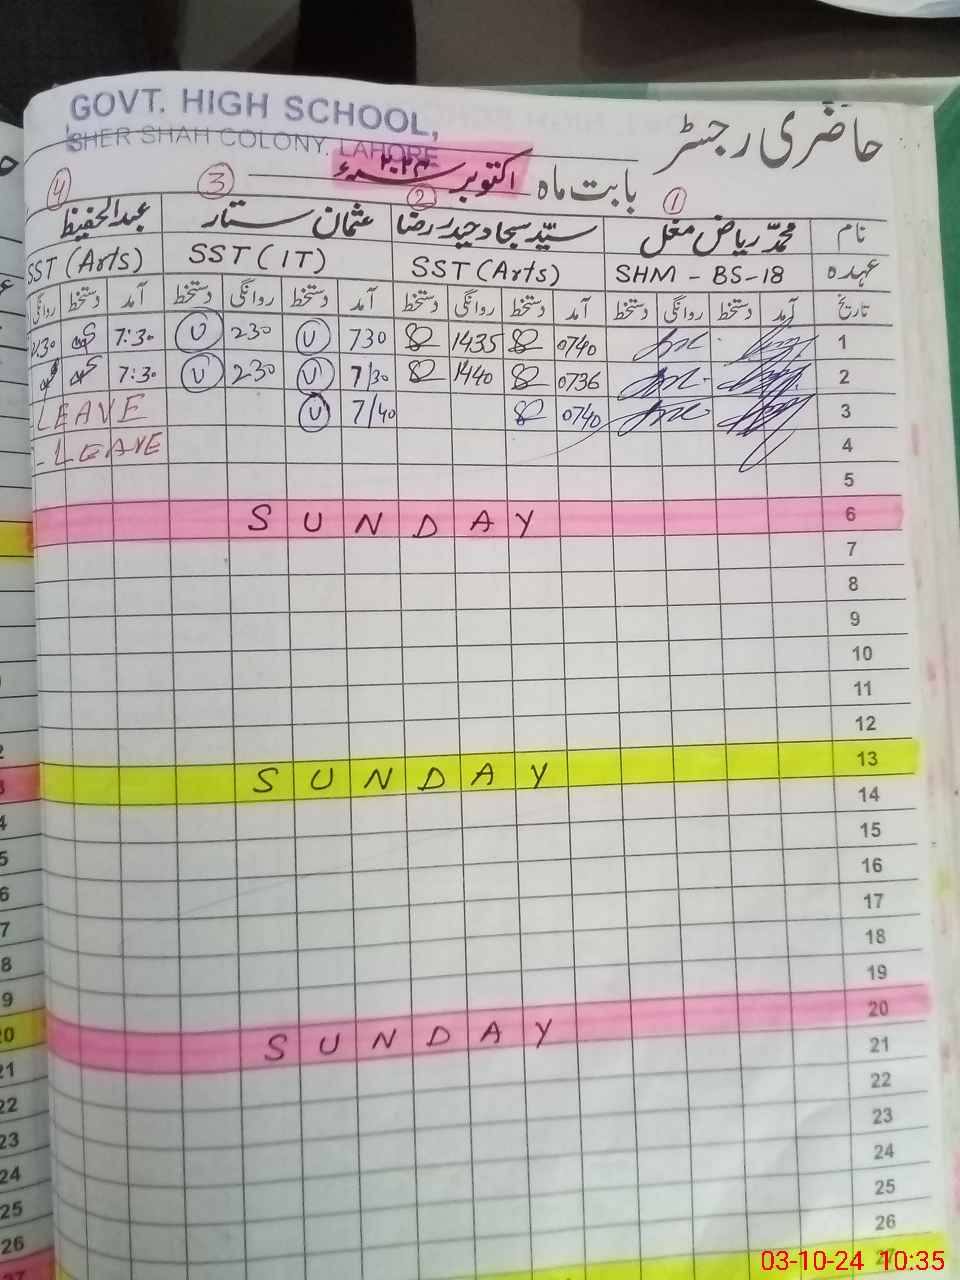 GOVT. HIGH SCHOOL,
SHER SHAH COLONY, LAHORE
حاضری رجسٹر
بابت ماہ اکتوبر سنہ ۲۰۲۴ء
1 2 3 4
نام محمد ریاض مغل سید سجاد حیدر رضا عثمان ستار عبدالحفیظ
عہدہ SHM - BS-18 SST (Arts) SST (IT) SST (Arts)
تاریخ آمد دستخط روانگی دستخط آمد دستخط روانگی دستخط آمد دستخط روانگی دستخط آمد دستخط روانگی
1 0740 1435 730 U 230 U 7:30
2 0736 1440 7/30 U 230 U 7:30
3 0740 7/40 U LEAVE
4 - LEAVE
5
6 SUNDAY
7
8
9
10
11
12
13 SUNDAY
14
15
16
17
18
19
20 SUNDAY
21
22
23
24
25
26
27
03-10-24 10:35